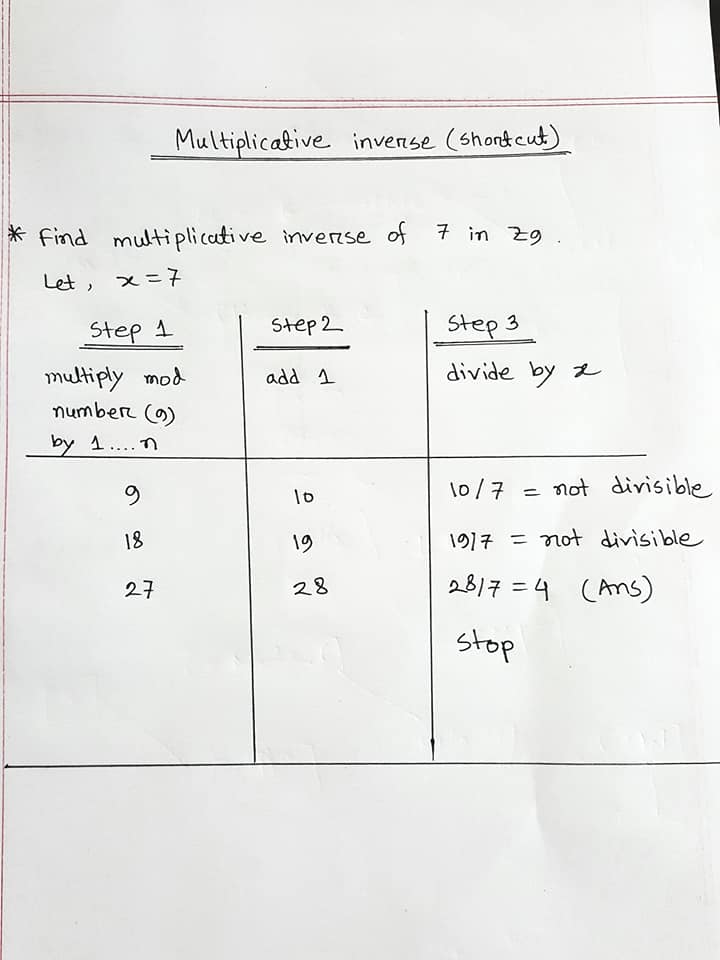 Multiplicative inverse (shortcut)
* Find multiplicative inverse of 7 in Z9.
Let, x = 7
Step 1
Step 2
Step 3
multiply mod
number (9)
by 1....n
add 1
divide by x
9
10
10/7 = not divisible
18
19
19/7 = not divisible
27
28
28/7 = 4 (Ans)
Stop